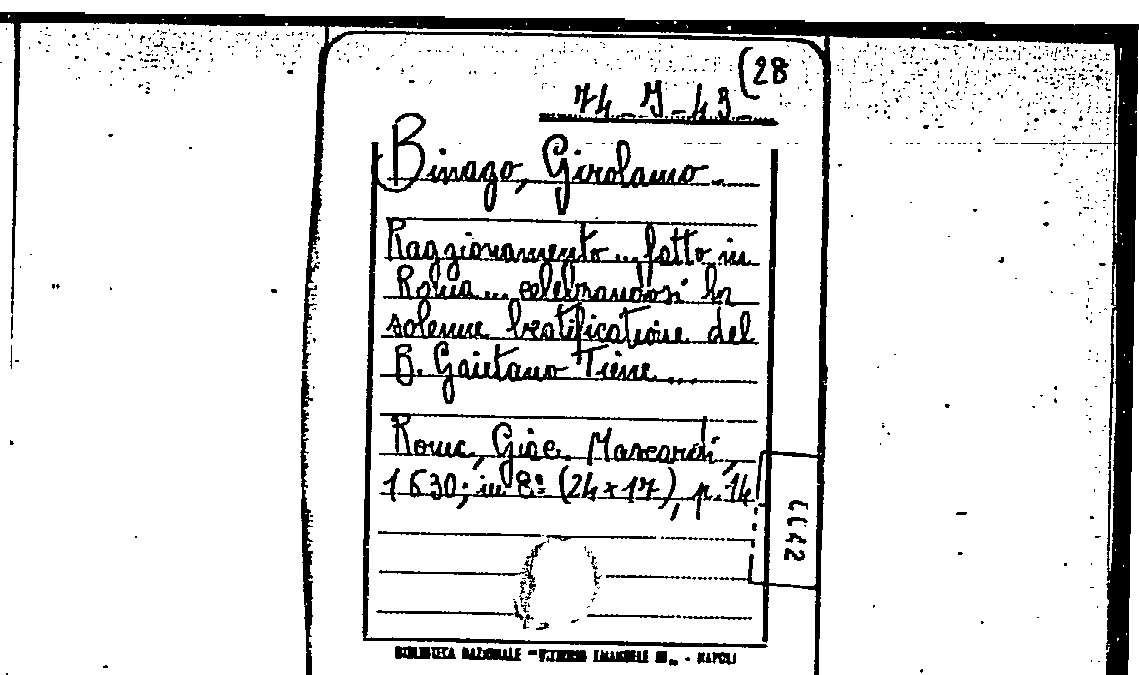 (28
74_J_43_
Binago, Girolamo
Raggionamento... fatto in
Roma... celebrandosi la
solenne beatificatione del
B. Gaietano Tiene...
Roma, Giac. Mascardi,
1630; in 8º (24x17), p. 14
BIBLIOTECA NAZIONALE "VITTORIO EMANUELE III" - NAPOLI